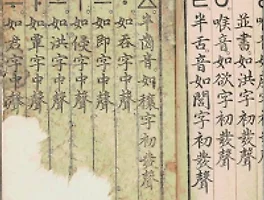 並書如洪字初發聲
ㅇ喉音如欲字初發聲
ㄹ半舌音如閭字初發聲
ㅿ半齒音如穰字初發聲
如呑字中聲
ㅡ如即字中聲
ㅣ如侵字中聲
ㅗ如洪字中聲
ㅏ如覃字中聲
ㅜ如君字中聲